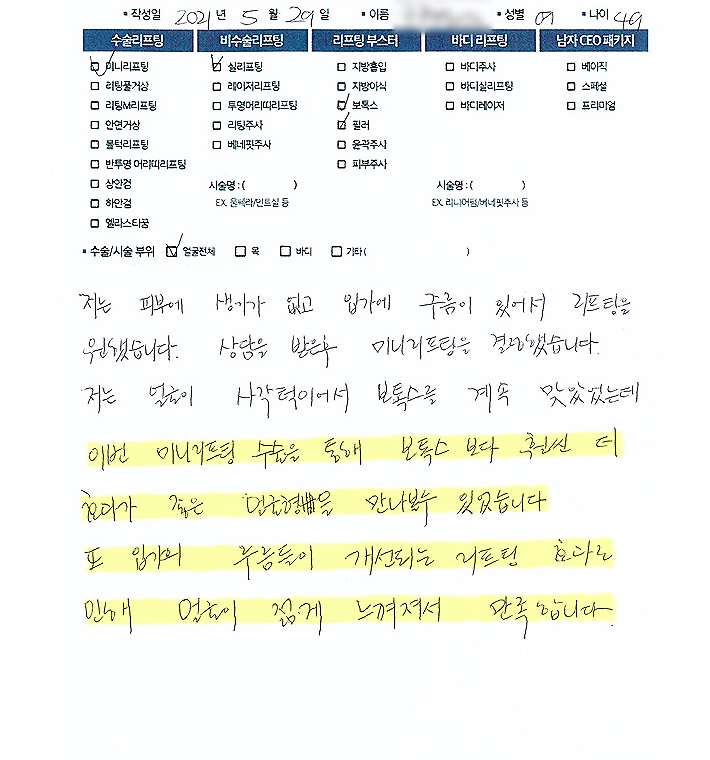 ▪ 작성일 2021년 5월 29일 ▪ 이름 ▪ 성별 여 ▪ 나이 49
수술리프팅 비수술리프팅 리프팅 부스터 바디 리프팅 남자 CEO 패키지
미니리프팅 실리프팅 지방흡입 바디주사 베이직
리팅풀거상 레이저리프팅 지방이식 바디실리프팅 스페셜
리팅M리프팅 투명머리띠리프팅 보톡스 바디레이저 프리미엄
안면거상 리팅주사 필러
불턱리프팅 베네핏주사 윤곽주사
반투명 머리띠리프팅 피부주사
상안검 시술명 : ( ) 시술명 : ( )
하안검 EX. 울쎄라/민트실 등 EX. 리니어펌/베네핏주사 등
엘라스티꿈
▪ 수술/시술 부위 얼굴전체 목 바디 기타 ( )
저는 피부에 생기가 없고 입가에 주름이 있어서 리프팅을
원했습니다. 상담을 받은후 미니리프팅을 결정했습니다.
저는 얼굴이 사각턱이어서 보톡스를 계속 맞았었는데
이번 미니리프팅 수술을 통해 보톡스 보다 훨씬 더
효과가 좋은 얼굴형을 만나볼수 있었습니다
또 입가의 주름들이 개선되는 리프팅 효과로
인해 얼굴이 젊게 느껴져서 만족합니다.